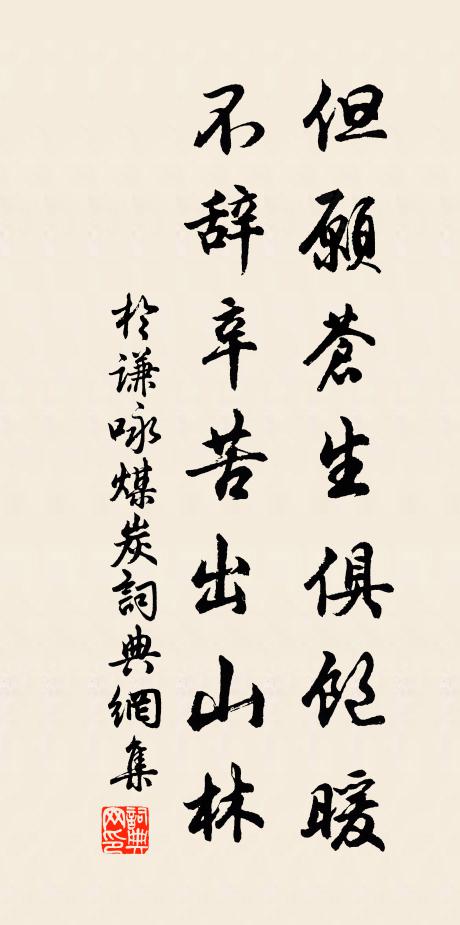 但願蒼生俱飽暖
不辞辛苦出山林
於謙咏煤炭詞典網集
詞典網印